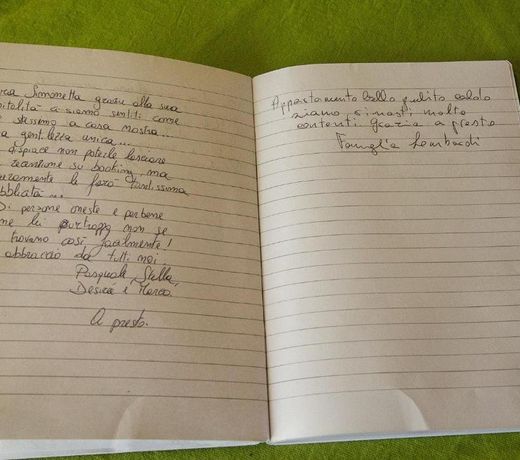 ra Simonetta grazie alla sua
pitalità ci siamo sentiti come
stessimo a casa nostra...
a gentilezza unica...
dispiace non poterle lasciare
recensione su booking, ma
uramente le farò tantissima
bblicità...
Di persone oneste e perbene
me lei purtroppo non se
trovano così facilmente!
abbraccio da tutti noi
Pasquale, Stella,
Desirè e Marco.
A presto.
Appartamento bello pulito caldo
siamo rimasti molto
contenti grazie a presto
Famiglia Lombardi